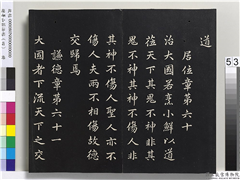 道
居位章第六十
治大國若烹小鮮以道
莅天下其鬼不神非其
鬼不神其神不傷人非
其神不傷人聖人亦不
傷人夫兩不相傷故德
交歸焉
謙德章第六十一
大國者下流天下之交
53